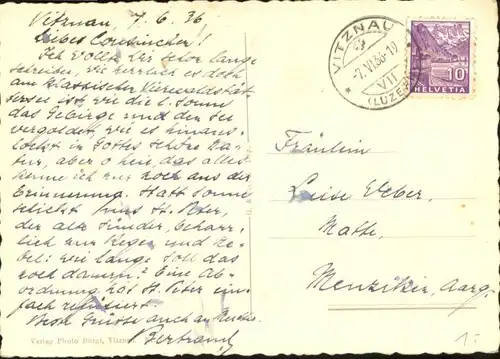 Vitznau, 7.6.36
Liebes Cousinchen!
Ich wollt Dir schon lange
schreiben, wie herrlich es doch
am klassischen Vierwaldstät-
tersee ist, wie die l. Sonne
das Gebirge und den See
vergoldet, wie es hinaus-
lockt in Gottes schöne Na-
tur, aber o hein, das alles
kenne ich nur noch aus der
Erinnerung. Statt Sonne
schickt uns St. Peter,
der alte Sünder, beharr-
lich nur Regen und Ne-
bel: wie lange soll das
noch dauern? Eine Ab-
ordnung hat St. Peter ein-
fach refüsiert.
Beste Grüsse auch an
Bertrand
Verlag Photo Bürgi, Vitznau.
VITZNAU
-7.VI.36-19
VII
(LUZERN)
10
HELVETIA
Fräulein
Luise Weber,
Matte,
Menziken, Aarg.
1.-